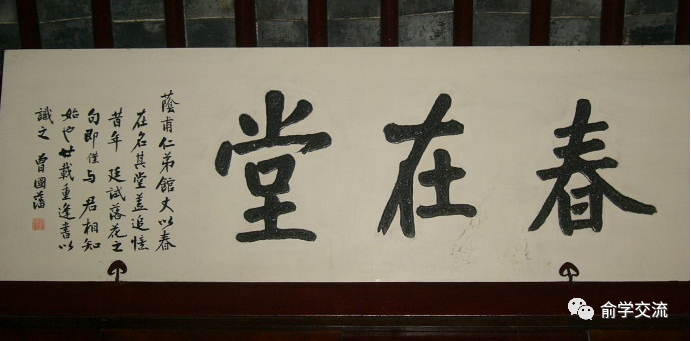 春在堂
蔭甫仁弟館丈以春
在名其堂蓋追憶
昔年 廷試落花之
句即僕與 君相知
始也廿載重逢書以
識之 曾國藩
俞学交流